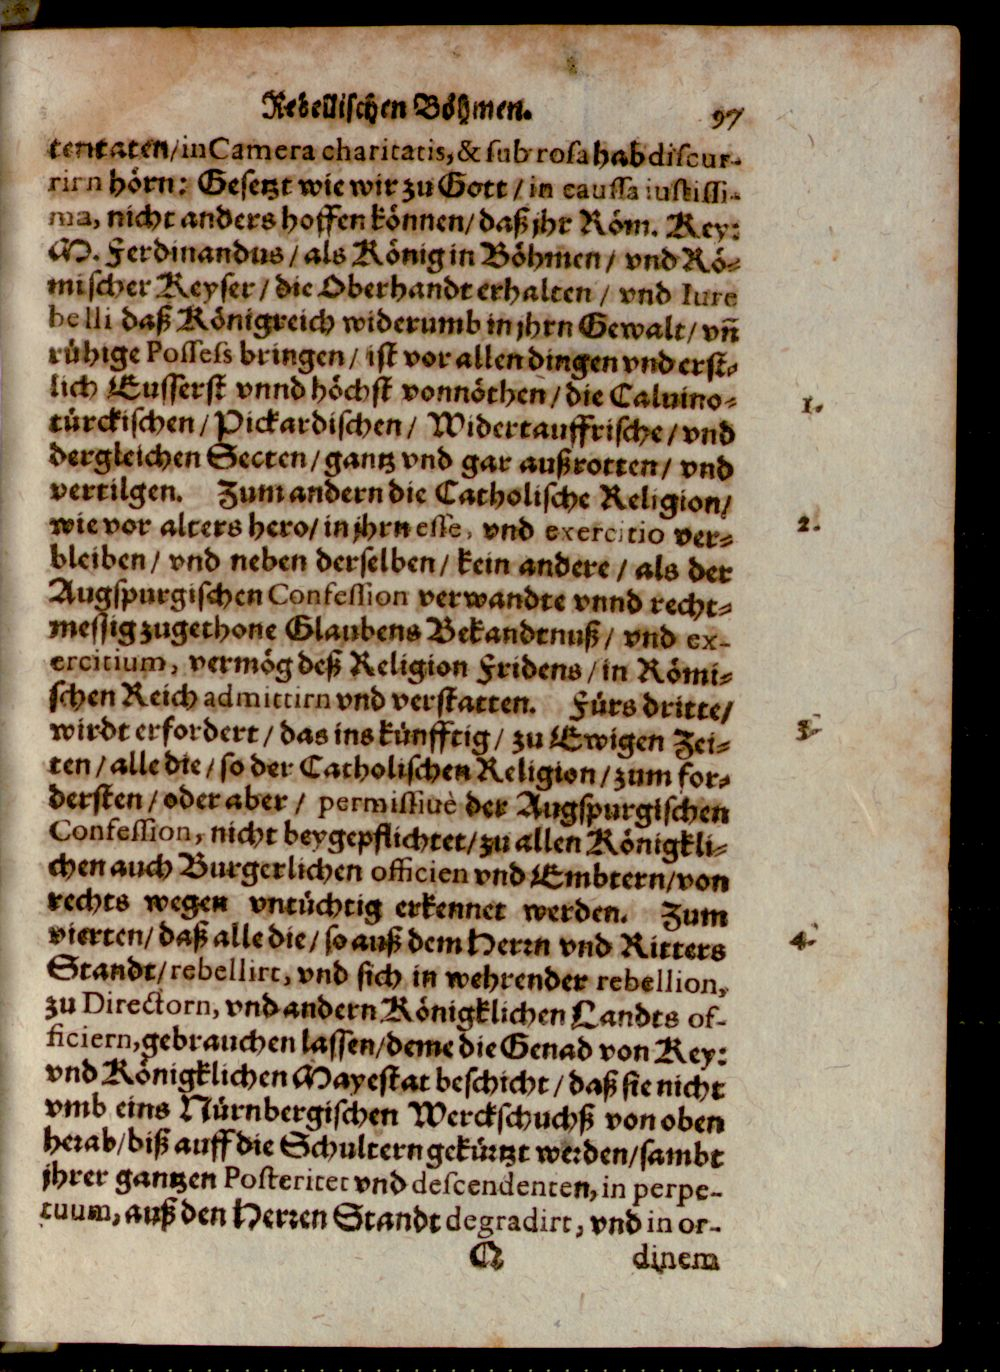 Rebellischen Böhmen. 97
tentaten/in Camera charitatis, & sub rosa hab discur-
rirn hörn: Gesetzt wie wir zu Gott/in caussa iustissi-
ma, nicht anders hoffen können/daß jhr Röm. Key:
M. Ferdinandus/als König in Böhmen/vnd Rö-
mischer Keyser/die Oberhandt erhalten/vnd Iure
belli daß Königreich widerumb in jhrn Gewalt/vn̄
rühige Possess bringen/ist vor allen dingen vnd erst-
lich Eusserst vnnd höchst vonnöthen/die Caluino-
türckischen/Pickardischen/Widertauffrische/vnd
dergleichen Secten/gantz vnd gar außrotten/vnd
vertilgen. Zum andern die Catholische Religion/
wie vor alters hero/in jhrn esse, vnd exercitio ver-
bleiben/vnd neben derselben/kein andere/als der
Augspurgischen Confession verwandte vnnd recht-
messig zugethone Glaubens Bekandtnuß/vnd ex-
ercitium, vermög deß Religion Fridens/in Römi-
schen Reich admittirn vnd verstatten. Fürs dritte/
wirdt erfordert/das ins künfftig/zu Ewigen Zei-
ten/alle die/so der Catholischen Religion/zum for-
dersten/oder aber/permissiuè der Augspurgischen
Confession, nicht beygepflichtet/zu allen Königkli-
chen auch Burgerlichen officien vnd Embtern/von
rechts wegen vntüchtig erkennet werden. Zum
vierten/daß alle die/so auß dem Herrn vnd Ritters
Standt/rebellirt, vnd sich in wehrender rebellion,
zu Directorn, vnd andern Königklichen Landts of-
ficiern, gebrauchen lassen/deme die Genad von Key:
vnd Königklichen Mayestat beschicht/daß sie nicht
vmb eins Nürnbergischen Werckschuchß von oben
herab/biß auff die Schultern gekürtzt werden/sambt
jhrer gantzen Posteritet vnd descendenten, in perpe-
tuum, auß den Herren Standt degradirt, vnd in or-
Q dinem
1.
2.
3.
4.